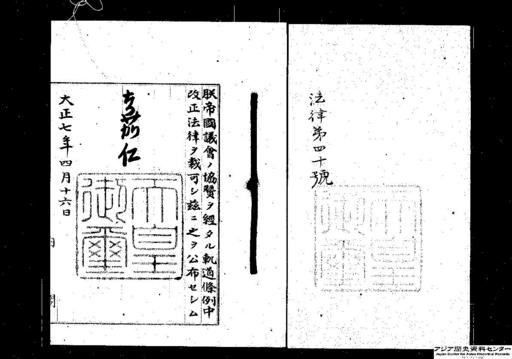 法律第四十號
朕帝國議會ノ協贊ヲ經タル軌道條例中
改正法律ヲ裁可シ茲ニ之ヲ公布セシム
嘉仁
天皇
御璽
大正七年四月十六日
アジア歴史資料センター
Japan Center for Asian Historical Records